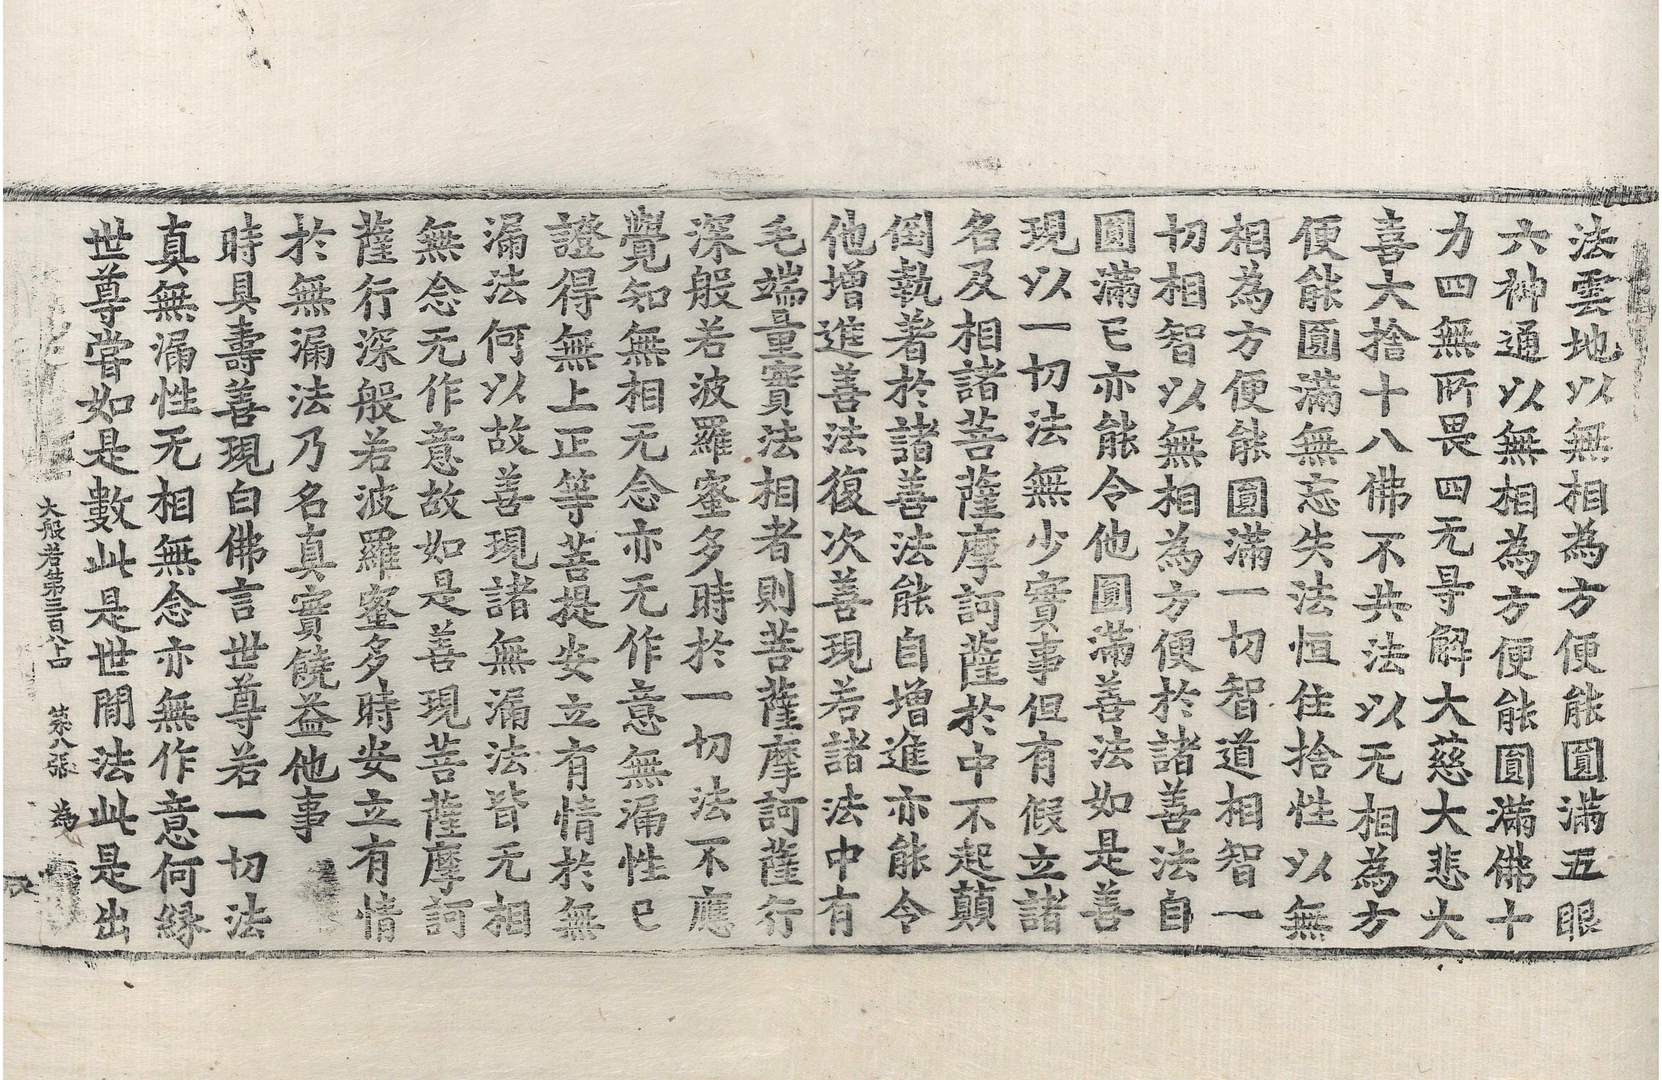 法雲地以無相為方便能圓滿五眼
六神通以無相為方便能圓滿佛十
力四無所畏四无㝵解大慈大悲大
喜大捨十八佛不共法以无相為方
便能圓滿無忘失法恒住捨性以無
相為方便能圓滿一切智道相智一
切相智以無相為方便於諸善法自
圓滿已亦能令他圓滿善法如是善
現以一切法無少實事但有假立諸
名及相諸菩薩摩訶薩於中不起顛
倒執著於諸善法能自增進亦能令
他增進善法復次善現若諸法中有
毛端量實法相者則菩薩摩訶薩行
深般若波羅蜜多時於一切法不應
覺知無相无念亦无作意無漏性已
證得無上正等菩提安立有情於無
漏法何以故善現諸無漏法皆无相
無念无作意故如是善現菩薩摩訶
薩行深般若波羅蜜多時安立有情
於無漏法乃名真實饒益他事
時具壽善現白佛言世尊若一切法
真無漏性无相無念亦無作意何緣
世尊甞如是數此是世閒法此是出
大般若第三百八十四 第八張 為